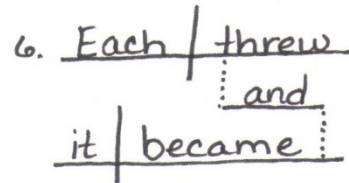 6. Each threw
and
it became